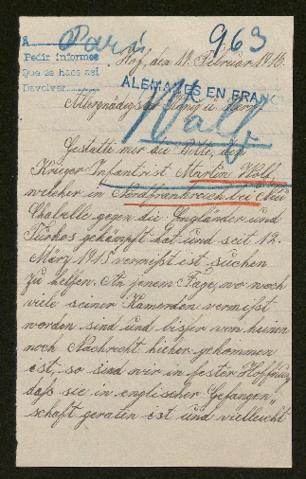 A Pará 963
Pedir informes
Que se hace así
Devolver
Hof, den 11. Februar 1916.
ALEMANES EN FRANC
Allergnädigster König u. Herr!
Wolf
Gestatte mir die Bitte, den
Krieger Infantrist Martin Wolf,
welcher in Nordfrankreich bei Neu
Chapelle gegen die Engländer und
Turkos gekämpft hat und seit 12.
März 1915 vermißt ist suchen
zu helfen. An jenem Tage, wo noch
viele seiner Kameraden vermißt
worden sind und bisher von keinen
noch Nachricht hieher gekommen
ist, so sind wir in fester Hoffnung
daß sie in englischer Gefangen„
schaft geraten ist und vielleicht